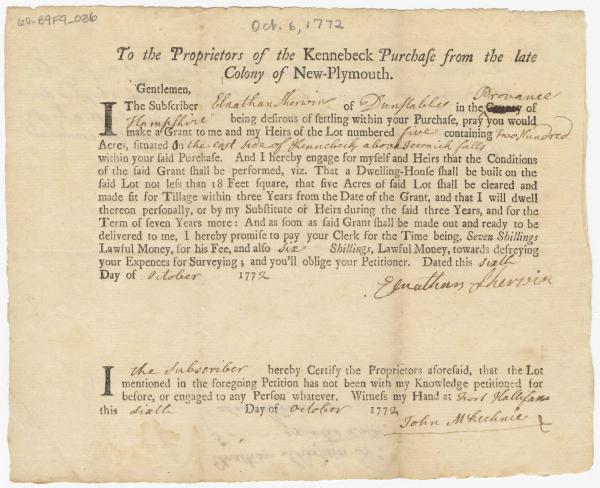 60-B9F9_036
Oct. 6, 1772
To the Proprietors of the Kennebeck Purchaſe from the late
Colony of New-Plymouth.
Gentlemen,
I The Subſcriber Elnathan Sherwin of Dunstable in the County Provance of
Hampshire being deſirous of ſettling within your Purchaſe, pray you would
make a Grant to me and my Heirs of the Lot numbered five containing two Hundred
Acres, situated On the east Side of Kennebeck above Teconick falls
within your ſaid Purchaſe. And I hereby engage for myſelf and Heirs that the Conditions
of the ſaid Grant ſhall be performed, viz. That a Dwelling-Houſe ſhall be built on the
ſaid Lot not leſs than 18 Feet ſquare, that five Acres of ſaid Lot ſhall be cleared and
made fit for Tillage within three Years from the Date of the Grant, and that I will dwell
thereon perſonally, or by my Subſtitute or Heirs during the ſaid three Years, and for the
Term of ſeven Years more: And as ſoon as ſaid Grant ſhall be made out and ready to be
delivered to me, I hereby promiſe to pay your Clerk for the Time being, Seven Shillings
Lawful Money, for his Fee, and alſo Six Shillings, Lawful Money, towards defreying
your Expences for Surveying; and you'll oblige your Petitioner. Dated this sixth
Day of October 1772
Elnathan Sherwin
I the Subscriber hereby Certify the Proprietors aforeſaid, that the Lot
mentioned in the foregoing Petition has not been with my Knowledge petitioned for
before, or engaged to any Perſon whatever. Witneſs my Hand at Fort Hallifax
this sixth Day of October 1772
John McKechnie